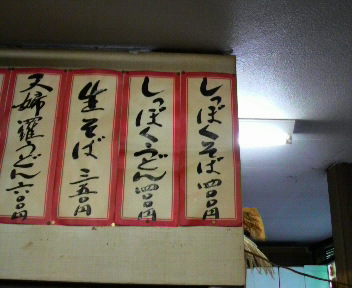 しっぽくそば 四〇〇円
しっぽくうどん 四〇〇円
生そば 三五〇円
天婦羅うどん 六〇〇円